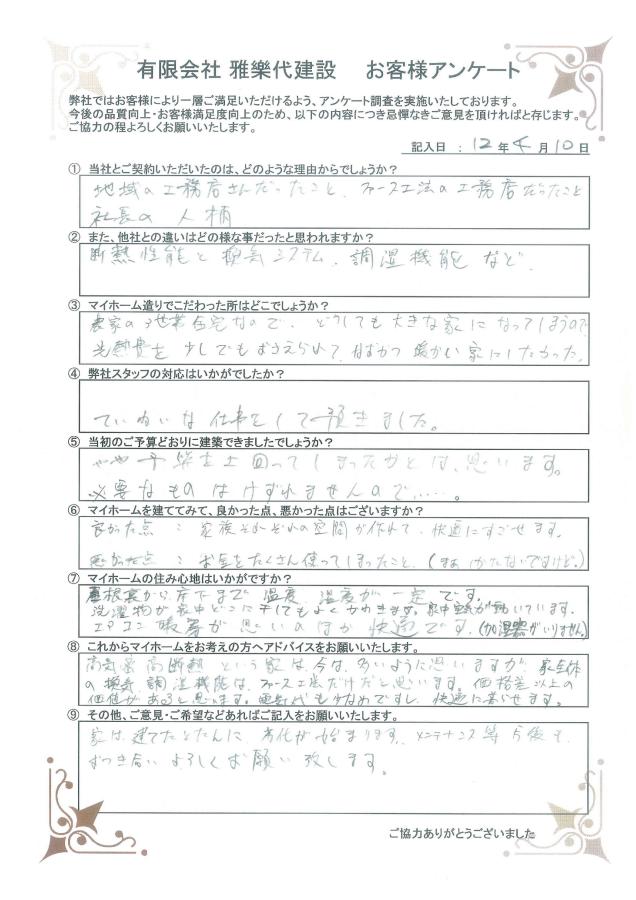 有限会社 雅樂代建設　お客様アンケート
弊社ではお客様により一層ご満足いただけるよう、アンケート調査を実施いたしております。
今後の品質向上・お客様満足度向上のため、以下の内容につき忌憚なきご意見を頂ければと存じます。
ご協力の程よろしくお願いいたします。
記入日 : 12年 4月 10日
① 当社とご契約いただいたのは、どのような理由からでしょうか？
地域の工務店さんだったこと、ファース工法の工務店だったこと
社長の人柄
② また、他社との違いはどの様な事だったと思われますか？
断熱性能と換気システム、調湿機能など
③ マイホーム造りでこだわった所はどこでしょうか？
農家の2世帯住宅なので、どうしても大きな家になってしまうので
光熱費を少しでもおさえられて、なおかつ暖かい家にしたかった。
④ 弊社スタッフの対応はいかがでしたか？
ていねいな仕事をして頂きました。
⑤ 当初のご予算どおりに建築できましたでしょうか？
やや予算を上回ってしまったかとは、思います。
必要なものはけずれませんので……。
⑥ マイホームを建ててみて、良かった点、悪かった点はございますか？
良かった点 : 家族それぞれの空間が作れて、快適にすごせます。
悪かった点 : お金をたくさん使ってしまったこと。(まぁ しかたないですけど。)
⑦ マイホームの住み心地はいかがですか？
屋根裏から床下まで温度、湿度が一定です。
洗濯物が家中どこに干してもよくかわきます。家中空気が動いています。
エアコン暖房が思いのほか快適です。(加湿器がいりません)
⑧ これからマイホームをお考えの方へアドバイスをお願いいたします。
高気密高断熱という家は今は、多いように思いますが、家全体
の換気、調湿機能は、ファース工法だけだと思います。価格差以上の
価値があると思います。電気代も少なめですし、快適に暮せます。
⑨ その他、ご意見・ご希望などあればご記入をお願いいたします。
家は建てたとたんに劣化が始まります。メンテナンス等今後も、
おつき合いよろしくお願い致します。
ご協力ありがとうございました